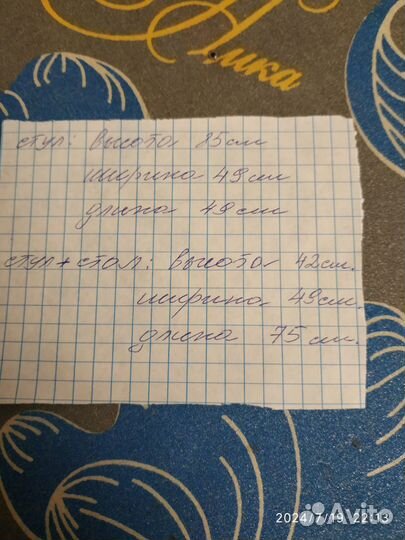 Ника
стул: высота 85см
ширина 49см
длина 49см
стул+стол: высота 42см.
ширина 49см.
длина 75см.
2024/7/19 22:13
Avito